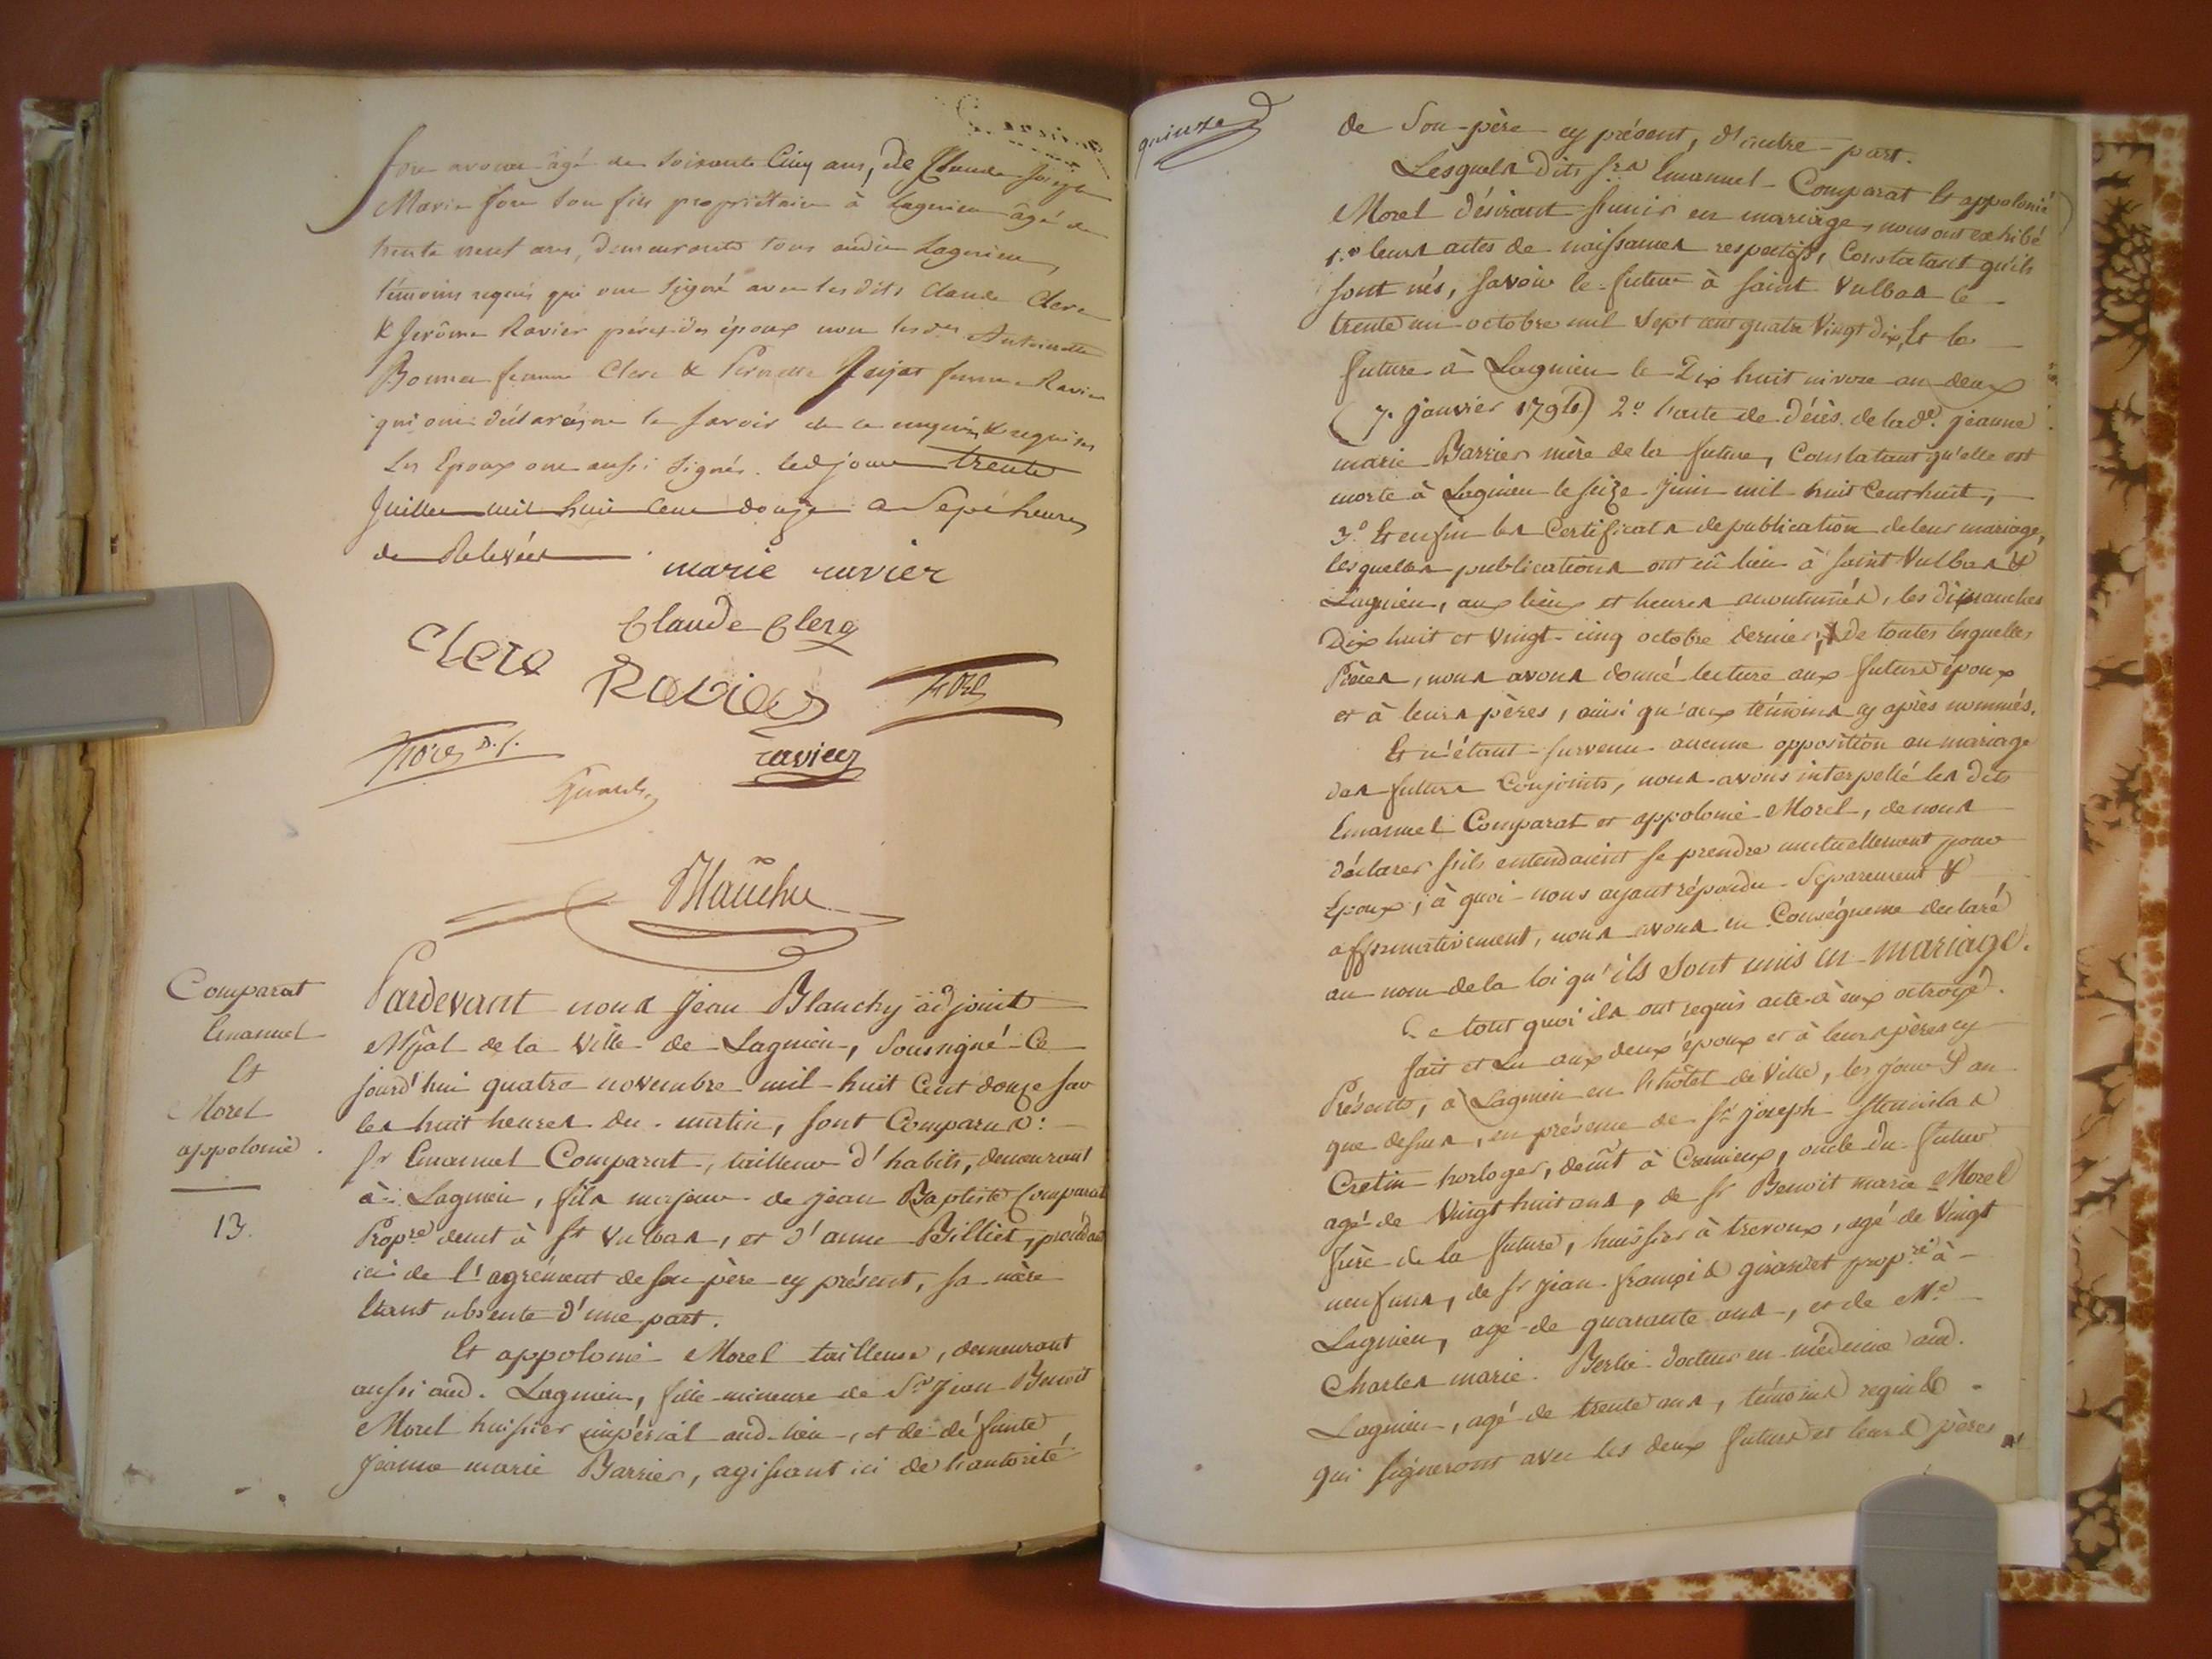 fore avoue âgé de soixante Cinq ans, de Claude Joseph
Marie fore son fils propriétaire à Lagnieu âgé de
trente neuf ans, demeurants tous audit Lagnieu,
témoins requis qui ont signé avec lesdits Claude Clerc
& Jerôme Ravier pères des époux non lesdes Antoinette
Bonnet femme Clerc & Pernette femme Ravier
qui ont déclaré ne le savoir de ce enquis & requises
Les Epoux ont aussi signés. led jour trente
Juillet mil huit cent douze a Sept heures
de Relevée
marie ravier
Claude Clerq
Clerc
Ravier
fore
fore D.f.
ravier
Blanchy
Comparat
Emanuel
Et
Morel
appolonie.
13.
Pardevant nous Jean Blanchy adjoint
Mpal de la Ville de Lagnieu, Soussigné Ce
jourd'hui quatre novembre mil-huit Cent douze sur
les huit heures du matin, sont Comparus:
Sr Emanuel Comparat, tailleur d'habits, demeurant
à Lagnieu, fils majeur de jean Baptiste Comparat
Propre demt à St Vulbas, et d'anne Billiet, procédant
ici de l'agrément de son père cy présent, sa mère
Etant absente d'une part.
Et appolonie Morel tailleuse, demeurant
aussi aud. Lagnieu, fille mineure de Sr Jean Benoit
Morel huissier impérial aud. lieu, et de défunte
Jeanne marie Barrier, agissant ici de l'autorité
quinze
de Son père cy présent, d'autre part.
Lesquels dits Srs Emanuel Comparat Et appolonie
Morel désirant s'unir en mariage, nous ont exhibé
1.o leurs actes de naissances respectifs, Constatant qu'ils
sont nés, savoir le futur à Saint Vulbas le
trente un octobre mil Sept cent quatre Vingt dix, Et la
future à Lagnieu le Dix huit nivose an deux
(7. janvier 1794) 2.o l'acte de décès de lade. jeanne
marie Barrier mère de la future, Constatant qu'elle est
morte à Lagnieu le seize Juin mil huit Cent huit,
3.o Et enfin les Certificats de publication de leur mariage,
lesquelles publications ont eû lieu à Saint Vulbas &
Lagnieu, aux lieux et heures accoutumés, les dimanches
Dix huit et Vingt-cinq octobre dernier, de toutes lesquelles
Pièces, nous avons donné lecture aux futurs époux
et à leurs pères, ainsi qu'aux témoins cy après nommés.
Et n'étant survenu aucune opposition au mariage
des futurs Conjoints, nous avons interpellé les dits
Emanuel Comparat et appolonie Morel, de nous
déclarer s'ils entendaient se prendre mutuellement pour
Epoux; à quoi nous ayant répondu Séparement &
affirmativement, nous avons en Conséquence declaré
au nom de la loi qu'ils Sont unis en mariage.
De tout quoi ils ont requis acte à eux octroyé.
fait et Lu aux deux époux et à leurs pères cy
Présents, à Lagnieu en l'hôtel de Ville, les jour & an
que dessus, en présence de Sr joseph Stanislas
Cretin horloger, demt à Cremieux, oncle du futur
agé de Vingt huit ans, de Sr Benoit marie Morel
frère de la future, huissier à trevoux, agé de Vingt
neuf ans, de Sr jean françois girardet propre à
Lagnieu, agé de quarante ans, et de Me
Charles marie Berlie docteur en médecine aud.
Lagnieu, agé de trente ans, témoins requis
qui signeront avec les deux futurs et leurs pères